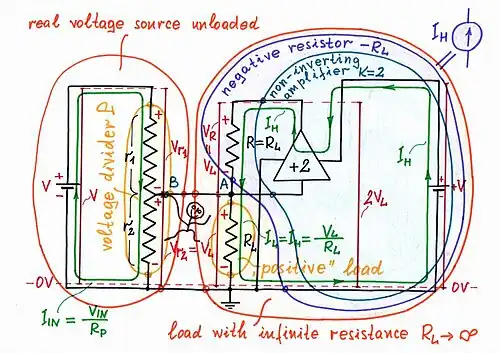 real voltage source unloaded
I_H
negative resistor -R_L
non-inverting
amplifier K=2
voltage divider P
V
V
r1
r2
V_r1
V_r2 = V_L
B
A
%
V_R
=
V_L
I_H
R=R_L
+2
I_H
+V
2V_L
R_L
I_L=I_H= V_L/R_L
"positive" load
-0V
0V-
I_IN = V_IN/R_P
load with infinite resistance R_L → ∞